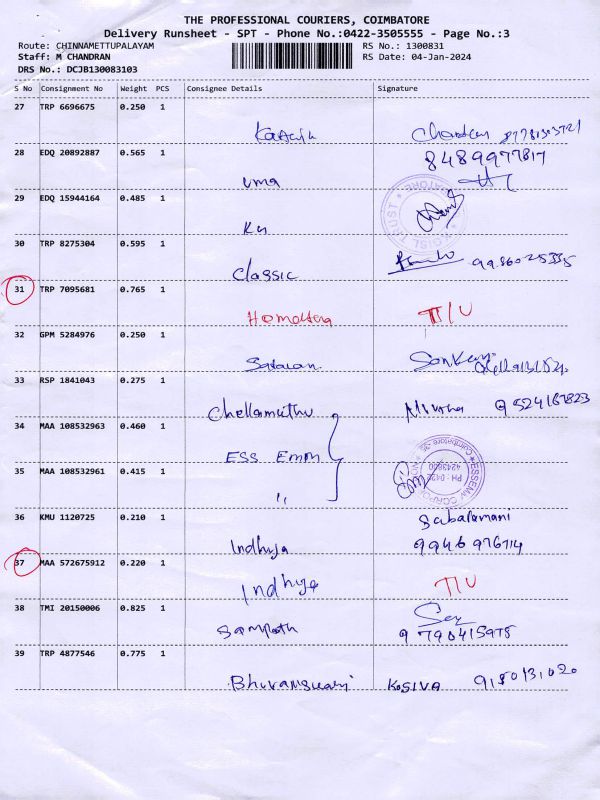 THE PROFESSIONAL COURIERS, COIMBATORE
Delivery Runsheet - SPT - Phone No.:0422-3505555 - Page No.:3
Route: CHINNAMETTUPALAYAM
RS No.: 1300831
Staff: M CHANDRAN
RS Date: 04-Jan-2024
DRS No.: DCJB130083103
S No Consignment No Weight PCS Consignee Details Signature
27 TRP 6696675 0.250 1
Chandru
28 EDQ 20892887 0.565 1
uma 8489977817
29 EDQ 15944164 0.485 1
30 TRP 8275304 0.595 1
Classic
31 TRP 7095681 0.765 1
T/U
32 GPM 5284976 0.250 1
33 RSP 1841043 0.275 1
Chellamuthu 9524167823
34 MAA 108532963 0.460 1
ESS Emm
35 MAA 108532961 0.415 1
"
PH - 0422
36 KMU 1120725 0.210 1
Sabalamani
Indhuja
37 MAA 572675912 0.220 1
Indhuja T/U
38 TMI 20150006 0.825 1
Sampath 9790415978
39 TRP 4877546 0.775 1
KOSIVA